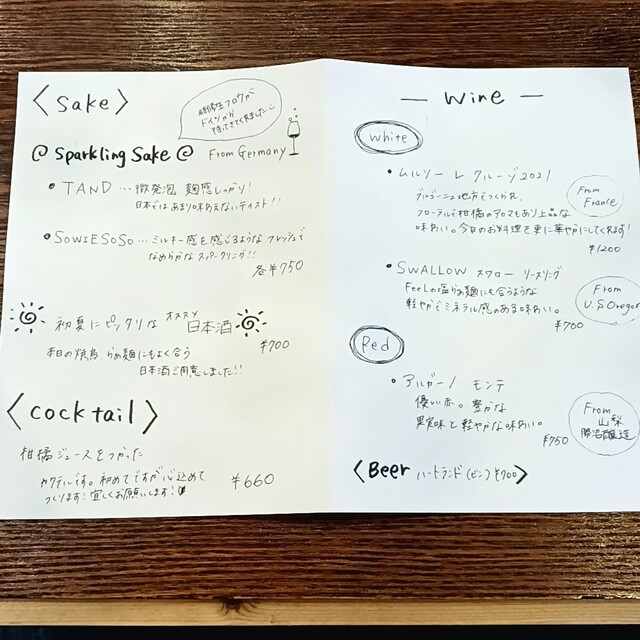 〈 Sake 〉
ドイツから
持ってきてくれました
@ Sparkling Sake @ From Germany
• TAND … 微発泡 麹感しっかり!
日本ではあまり味わえないテイスト!!
• SOWIESOSO … ミルキー感を感じるような フレッシュで
なめらかな スパークリング!!
各¥750
初夏にピッタリな オススメ 日本酒
¥700
本日の焼鳥、らぁ麺にもよく合う
日本酒ご用意しました!!
〈 cocktail 〉
柑橘ジュースをつかった
カクテルです。初めてですが心込めて
つくります!宜しくお願いします!
¥660
— Wine —
White
• ムルソー レ クルーゾ 2021
From France
ブルゴーニュ地方でつくられ、
フローラルで柑橘のアロマもあり上品な
味わい。今日のお料理を更に華やかにしてくれます!
¥1200
• SWALLOW スワロー リースリング
From U.S Oregon
Feelの塩らぁ麺にも合うような
軽やかでミネラル感のある味わい。
¥700
Red
• アルガーノ モンテ
優しい赤。豊かな
果実味と軽やかな味わい。
¥750
From 山梨 勝沼醸造
〈 Beer ハートランド (ビン) ¥700 〉